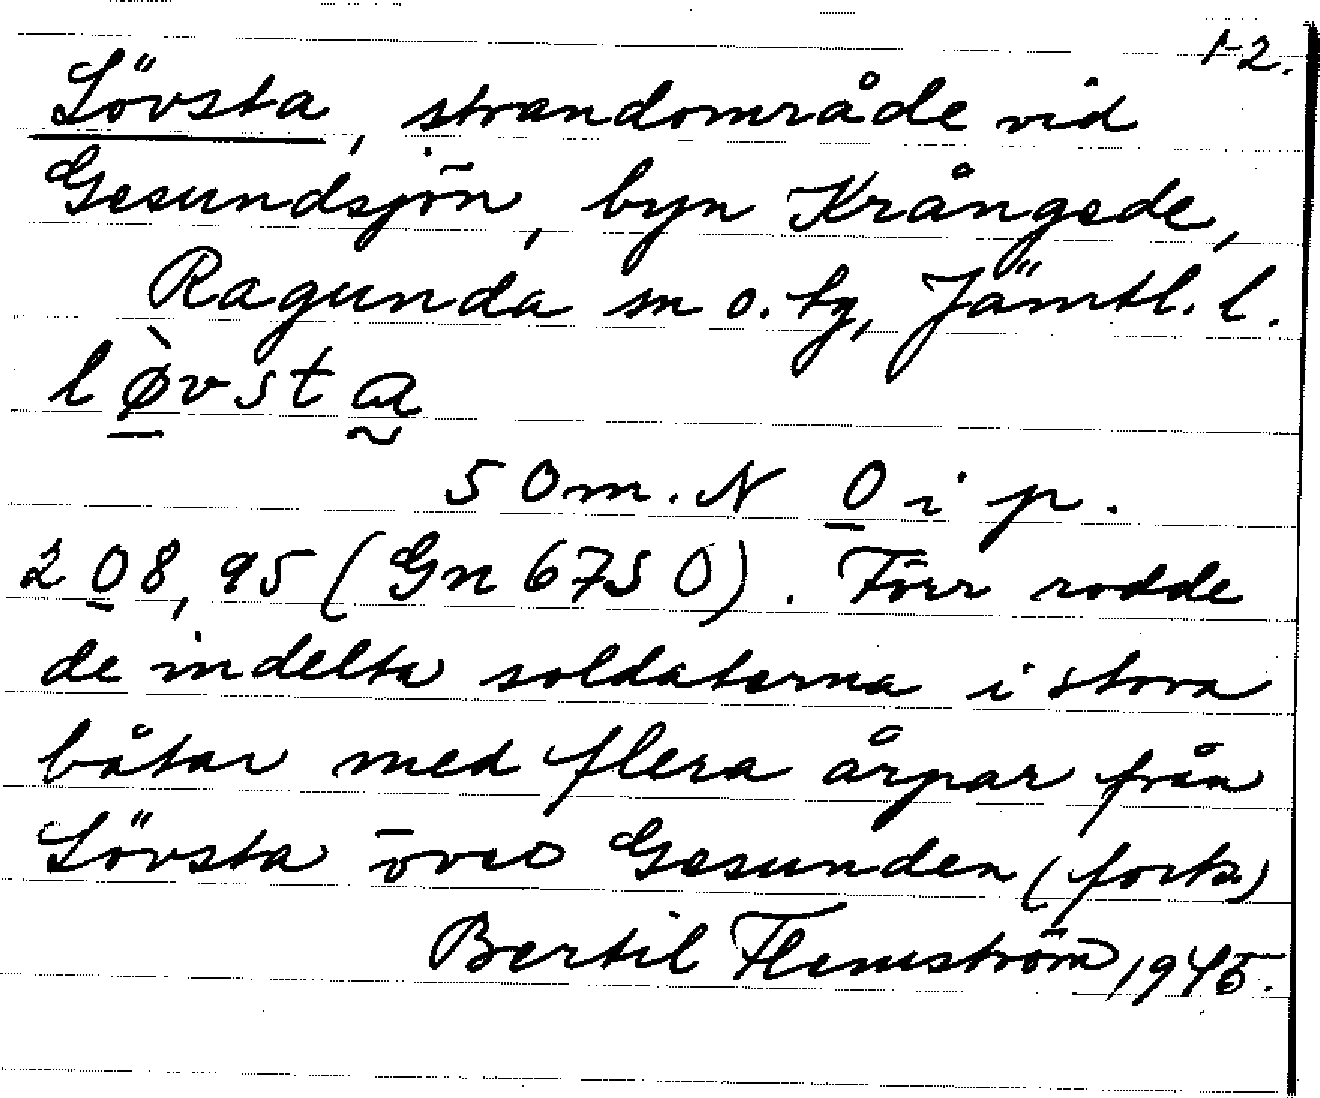 1-2.
Lövsta, strandområde vid
Gesundsjön, byn Krångede,
Ragunda sn o. tg, Jämtl. l.
lø̀vsta
50 m. N 0 i p.
208,95 (Gn 6750). Förr rodde
de indelta soldaterna i stora
båtar med flera årpar från
Lövsta över Gesunden (forts)
Bertil Flemström 1945.